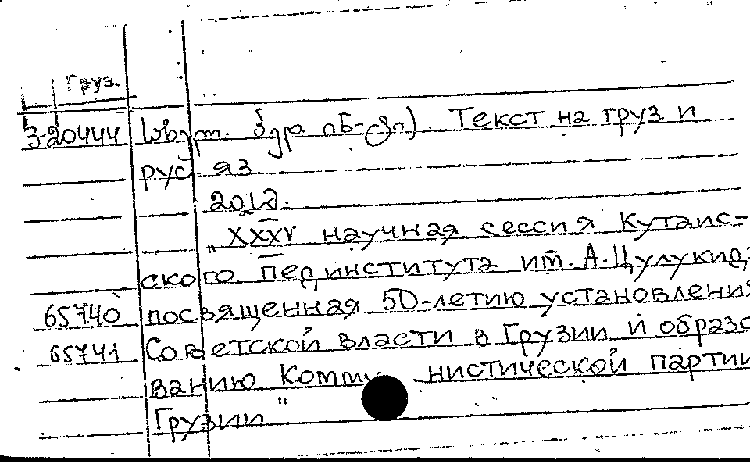 Груз.
3-20444 Текст на груз и
рус яз
"XXXV научная сессия Кутаис=
ского пединститута им. А.Цулукид.
65740 посвященная 50-летию установления
65741 Советской власти в Грузии и образо
ванию Коммунистической партии
Грузии"